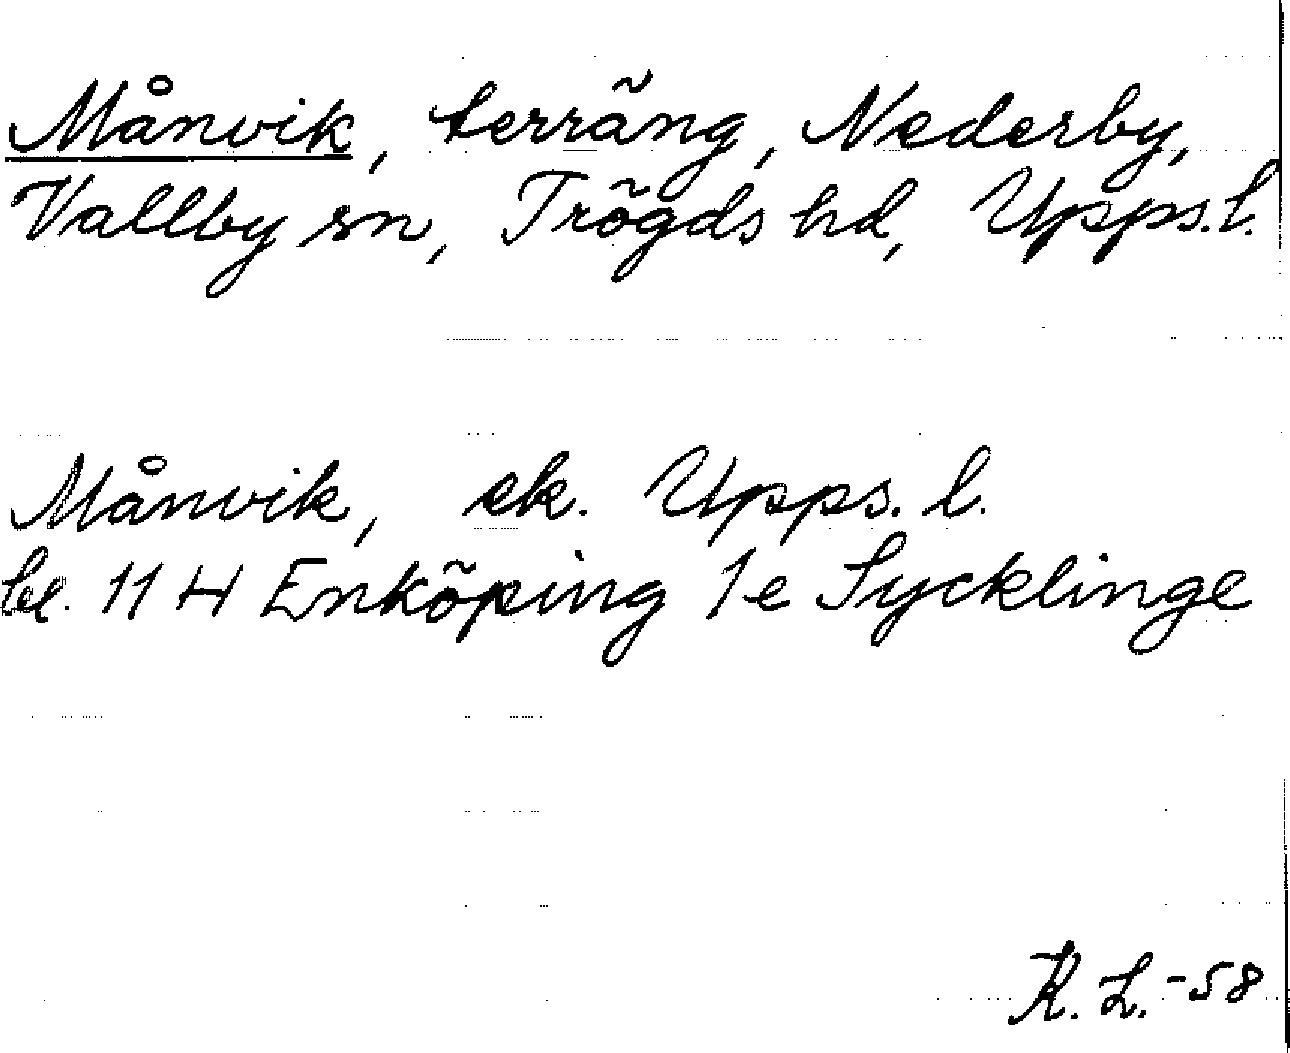 Månvik, terräng, Nederby,
Vallby sn, Trögds hd, Upps. l.
Månvik, ek. Upps. l.
bl. 11 H Enköping 1e Sycklinge
K. L. -58